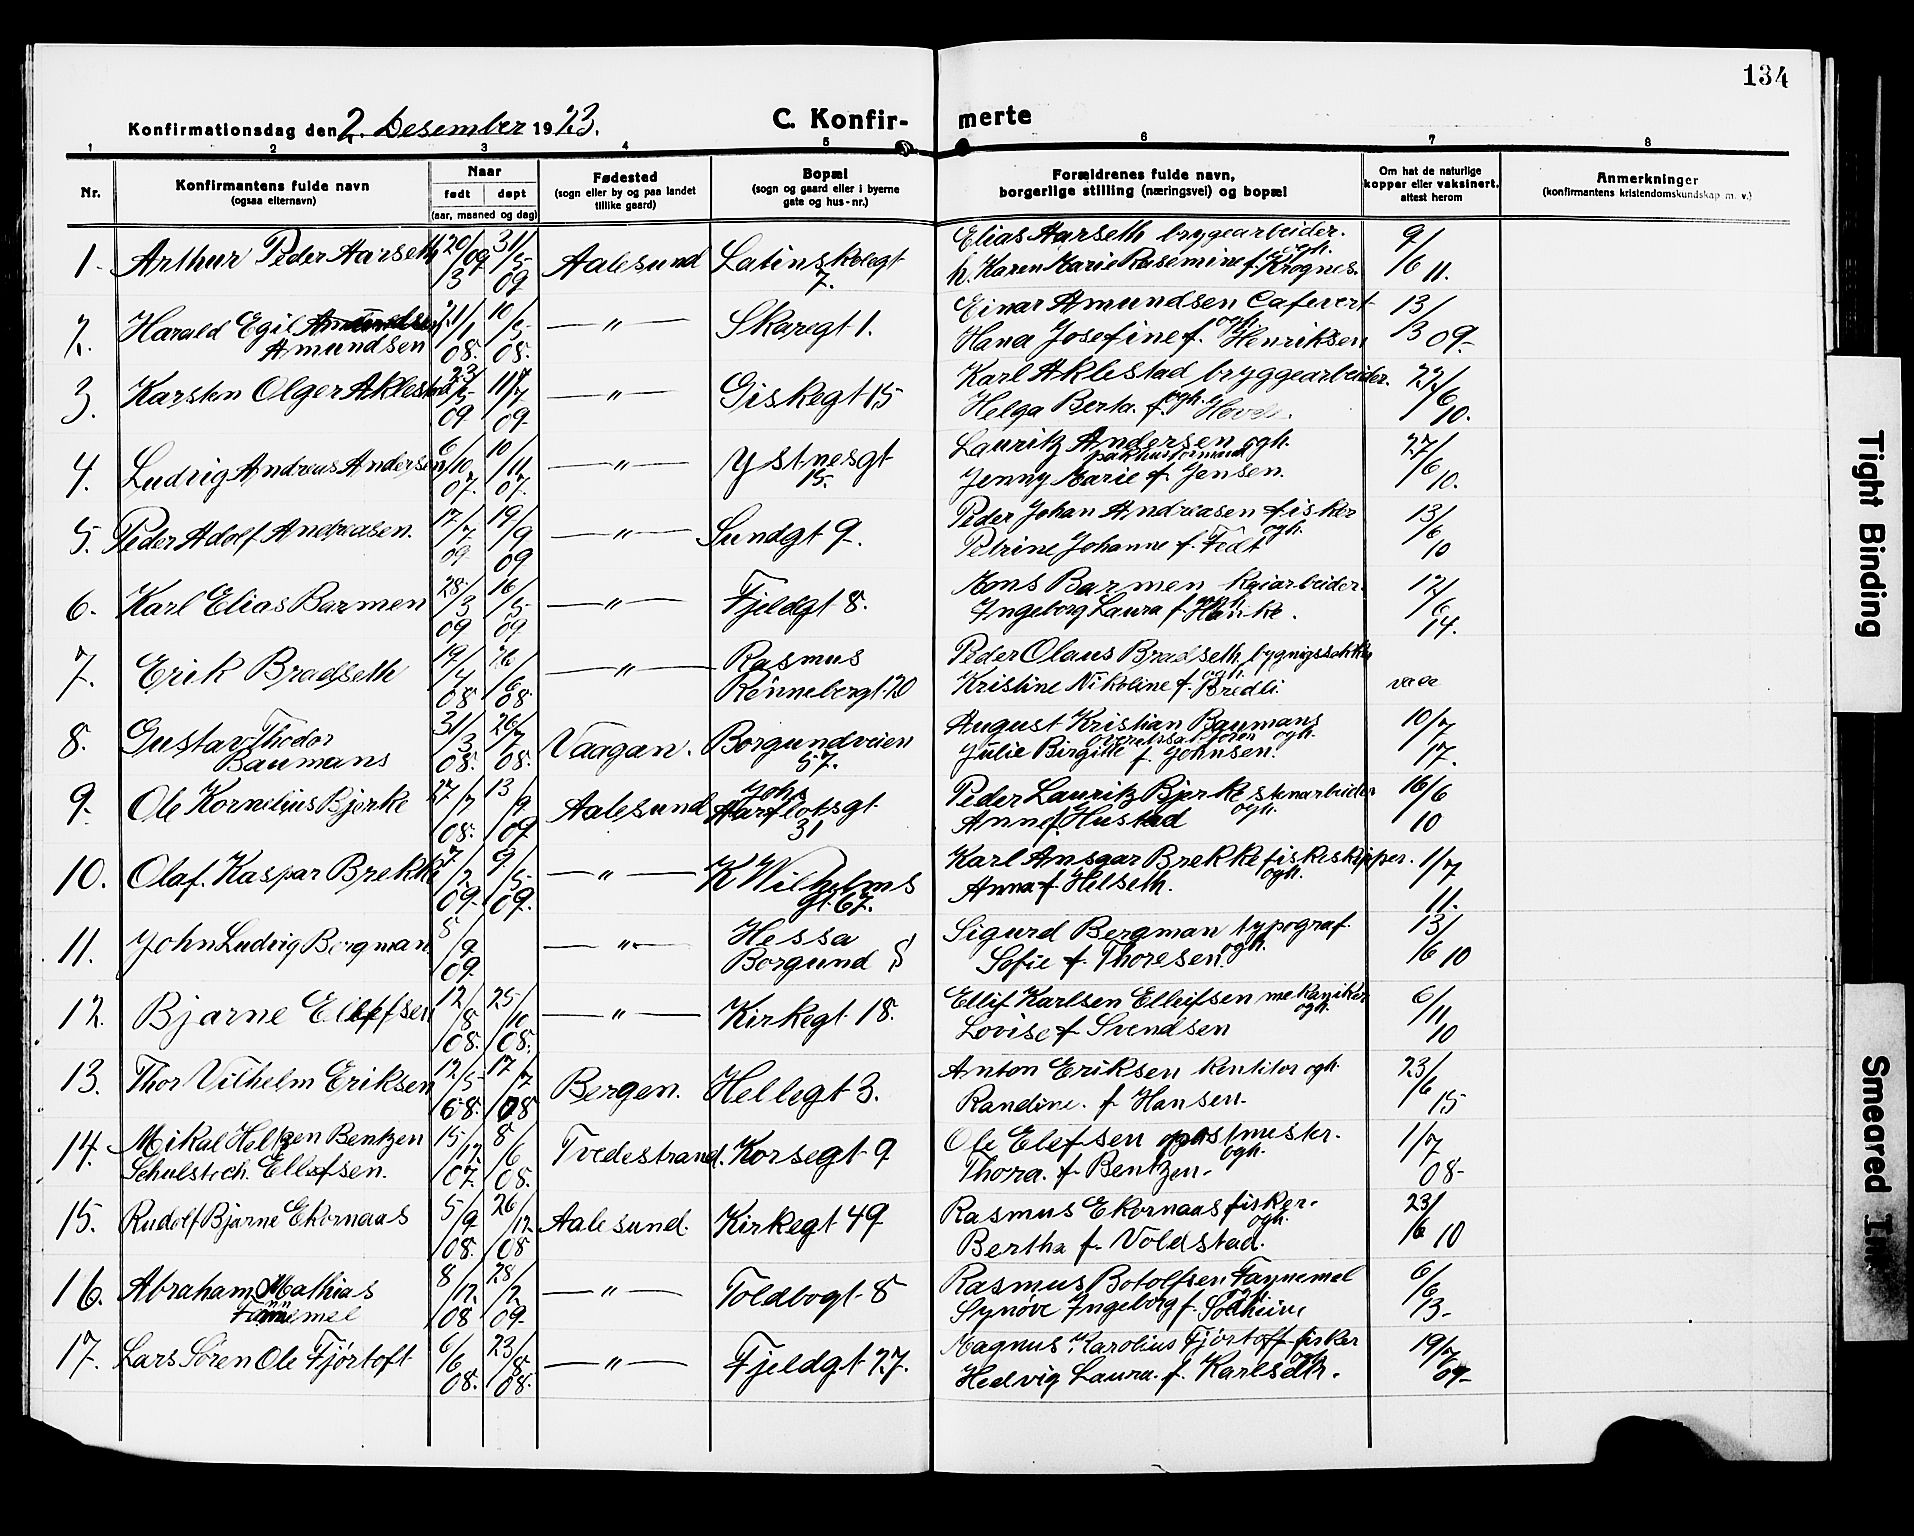 134
Konfirmationsdag den 2. Desember 1923.
C. Konfir- merte
1 2 3 4 5 6 7 8
Nr.
Konfirmantens fulde navn
(ogsaa elternavn)
Naar
født døpt
(aar, maaned og dag)
Fødested
(sogn eller by og paa landet
tillike gaard)
Bopæl
(sogn og gaard eller i byerne
gate og hus-nr.)
Forældrenes fulde navn,
borgerlige stilling (næringsvei) og bopæl
Om hat de naturlige
kopper eller vaksinert,
attest herom
Anmerkninger
(konfirmantens kristendomskundskap m. v.)
1. Arthur Peder Aarseth 20/3 09 31/5 09 Aalesund Latinskolegt 7. Elias Aarseth brygearbeider. ogh.
h. Karen Marie Rasemine f. Krognes. 9/6 11.
2. Harald Egil Amundsen 21/1 08. 10/5 08. —"— Skaregt 1. Einar Amundsen Cafevert ogh.
Amundsen Hana Josefine f. Henriksen 13/3 09.
3. Karsten Olger Aklestad 23/5 09 11/7 09. —"— Giskegt 15 Karl Aklestad bryggearbeider.
Helga Berta f. ogh. 22/6 10.
4. Ludvig Andreas Andersen 6/10 07. 10/11 07. —"— Ystnesgt 15. Lauritz Andersen ogh.
pakhusformand
Jenny Marie f. Jensen. 27/6 10.
5. Peder Adolf Andreasen. 17/7 09 19/9 09 —"— Sundgt 9. Peder Johan Andreasen fisker ogh.
Petrine Johanne f. 13/6 10
6. Karl Elias Barmen 28/3 09 16/5 09 —"— Fjeldgt 8. Mons Barmen kaiarbeider.
Ingeborg Laura f. 12/6 14.
7. Erik Bradseth 19/4 08 26/6 08. —"— Rasmus
Rønnebergt. 20 Peder Olaus Bradseth ogh.
Kristine Nikoline f. Bredli.
8. Gustav Thodor
Baumans 31/3 08. 26/7 08. Vaagan. Borgundveien
57. August Kristian Baumans ogh.
Julie Birgitte f. Johnsen. 10/7 17.
9. Ole Kornelius Bjerke 27/7 08. 13/9 09 Aalesund Johs
Aarflotsgt
31 Peder Lauritz Bjerke stenarbeider ogh.
Anne f. Hustad 16/6 10
10. Olaf. Kaspar Brekke 7/2 09. 9/5 09. —"— K Wilhelms
gt. 67. Karl Ansgar Brekke fiskeskipper. ogh.
Anna f. Helseth. 1/7 11.
11. John Ludvig Bergman 8/9 09. —"— Hessa
Borgund Sigurd Bergman typograf. ogh.
Sofie f. Thoresen. 13/6 10
12. Bjarne Ellefsen 12/8 08. 25/10 08. —"— Kirkegt 18. Ellif Karlsen Elleifsen mekaniker ogh.
Lovise f Svendsen 6/11 10
13. Thor Vilhelm Eriksen 12/5 08. 17/7 08 Bergen. Hellegt 3. Anton Eriksen kontitor ogh.
Randine. f. Hansen. 23/6 15
14. Mikal Heltzen Bentzen
Schulstoch. Ellefsen. 15/12 07. 8/6 08. Tvedestrand. Korsegt 9 Ole Elefsen postmestr. ogh.
Thora. f. Bentzen. 1/7 08.
15. Rudolf Bjarne Ekornaas 5/9 08. 26/12 08 Aalesund. Kirkegt 49 Rasmus Ekornaas fisker. ogh.
Bertha f. Voldstad. 23/6 10
16. Abraham Mathias
Fannemel 8/12 08 28/2 09. —"— Toldbogt. 8 Rasmus Botolfsen Fannemel
Synøve Ingeborg f. Solheim 6/6 13.
17. Lars Søren Ole Fjørtoft 6/6 08. 23/8 08. —"— Fjeldgt 27. Magnus Karolius Fjørtoft fisker ogh.
Hedvig Laura. f. Karlseth. 19/7 09.
Tight Binding
Smeared Ink